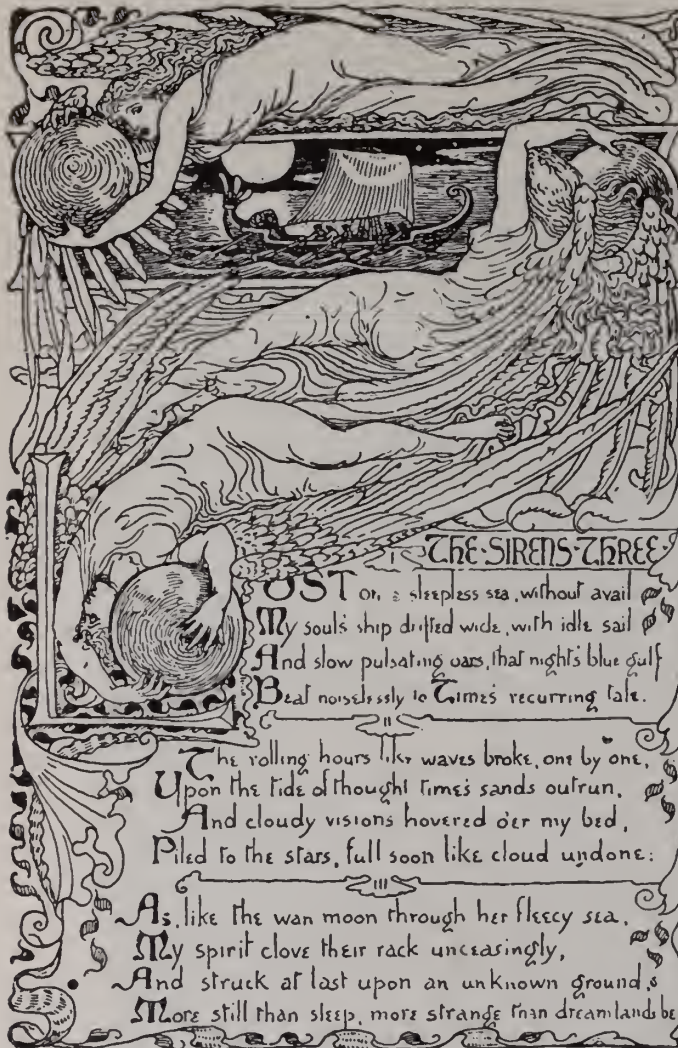 THE·SIRENS·THREE·
I
LOST on a sleepless sea, without avail
My soul's ship drifted wide, with idle sail
And slow pulsating oars, that night's blue gulf
Beat noiselessly to Time's recurring tale.
II
The rolling hours like waves broke, one by one,
Upon the tide of thought time's sands outrun,
And cloudy visions hovered o'er my bed,
Piled to the stars, full soon like cloud undone:
III
As, like the wan moon through her fleecy sea,
My spirit clove their rack unceasingly,
And struck at last upon an unknown ground,
More still than sleep, more strange than dreamlands be